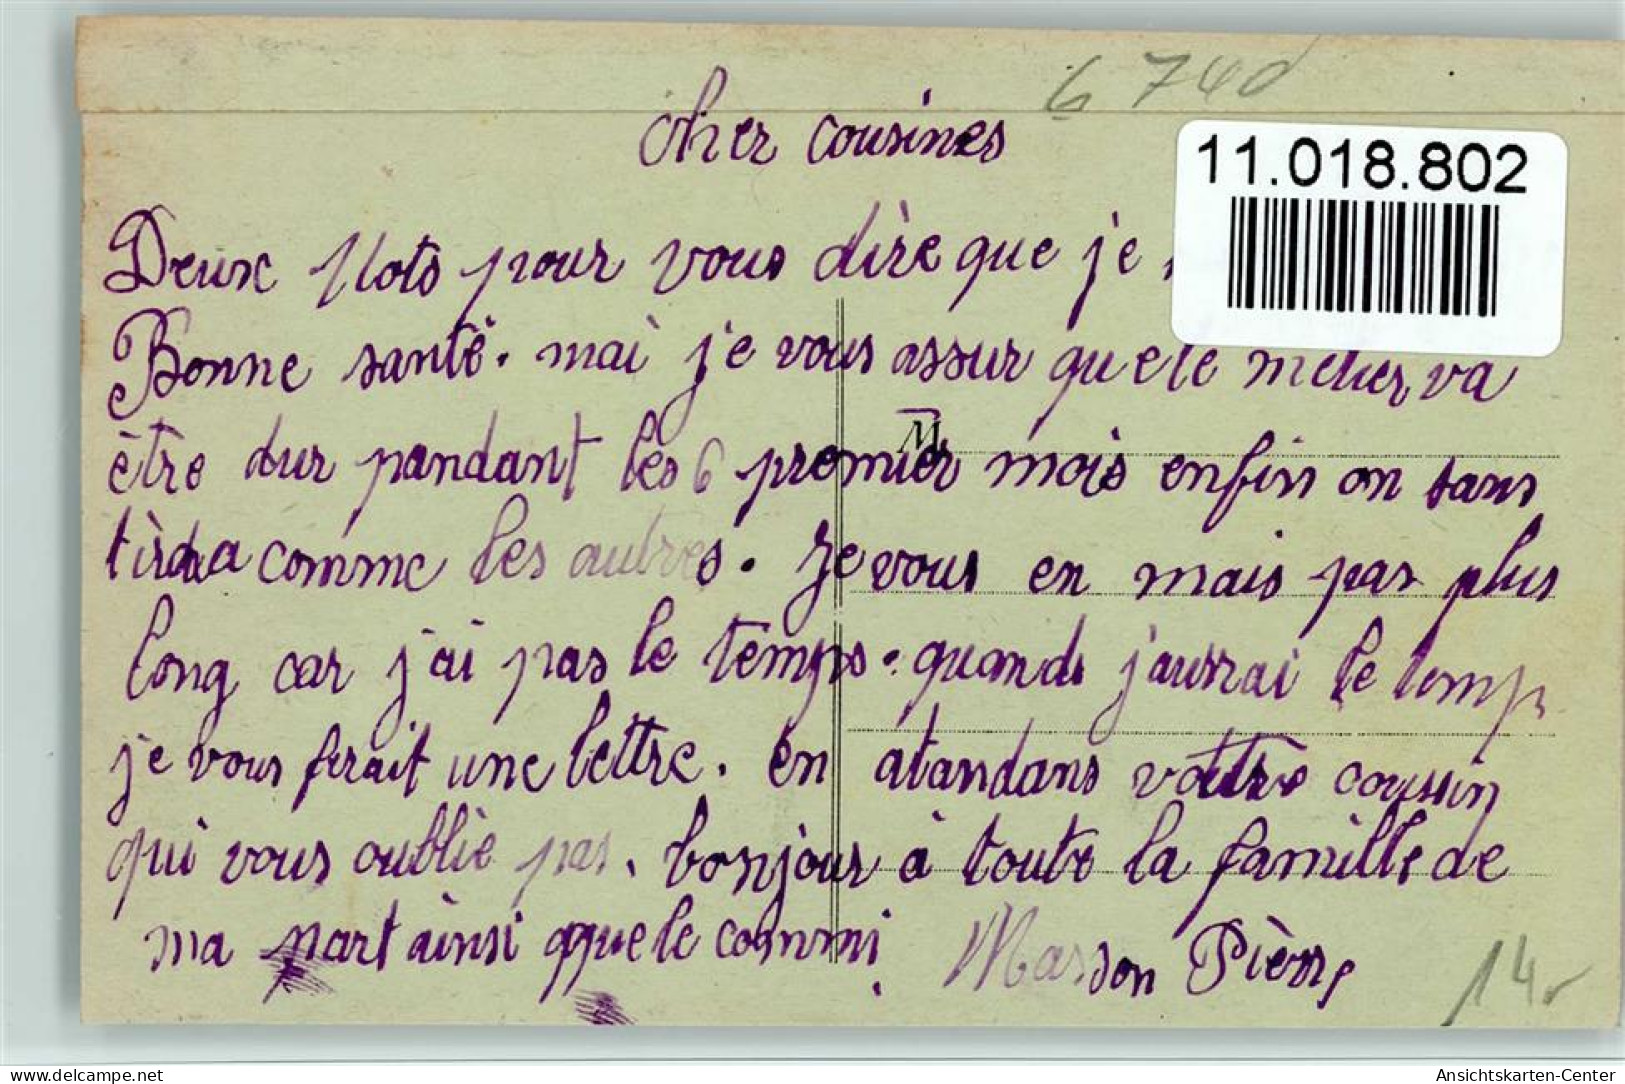 6 740
cher cousines
11.018.802
Deux Mots pour vous dire que je
Bonne santé. mai je vous assur que le metier va
être dur pandant les 6 premier mois enfin on sans
tirera comme les autres. Je vous en mais pas plus
long car j'ai pas le temps. quand j'aurrai le temp
je vous ferait une lettre. en atandans votre coussin
qui vous oublie pas. bonjour à toute la famille de
ma part ainsi que le commi.
Masson Pièrre
14
Ansichtskarten-Center
www.delcampe.net